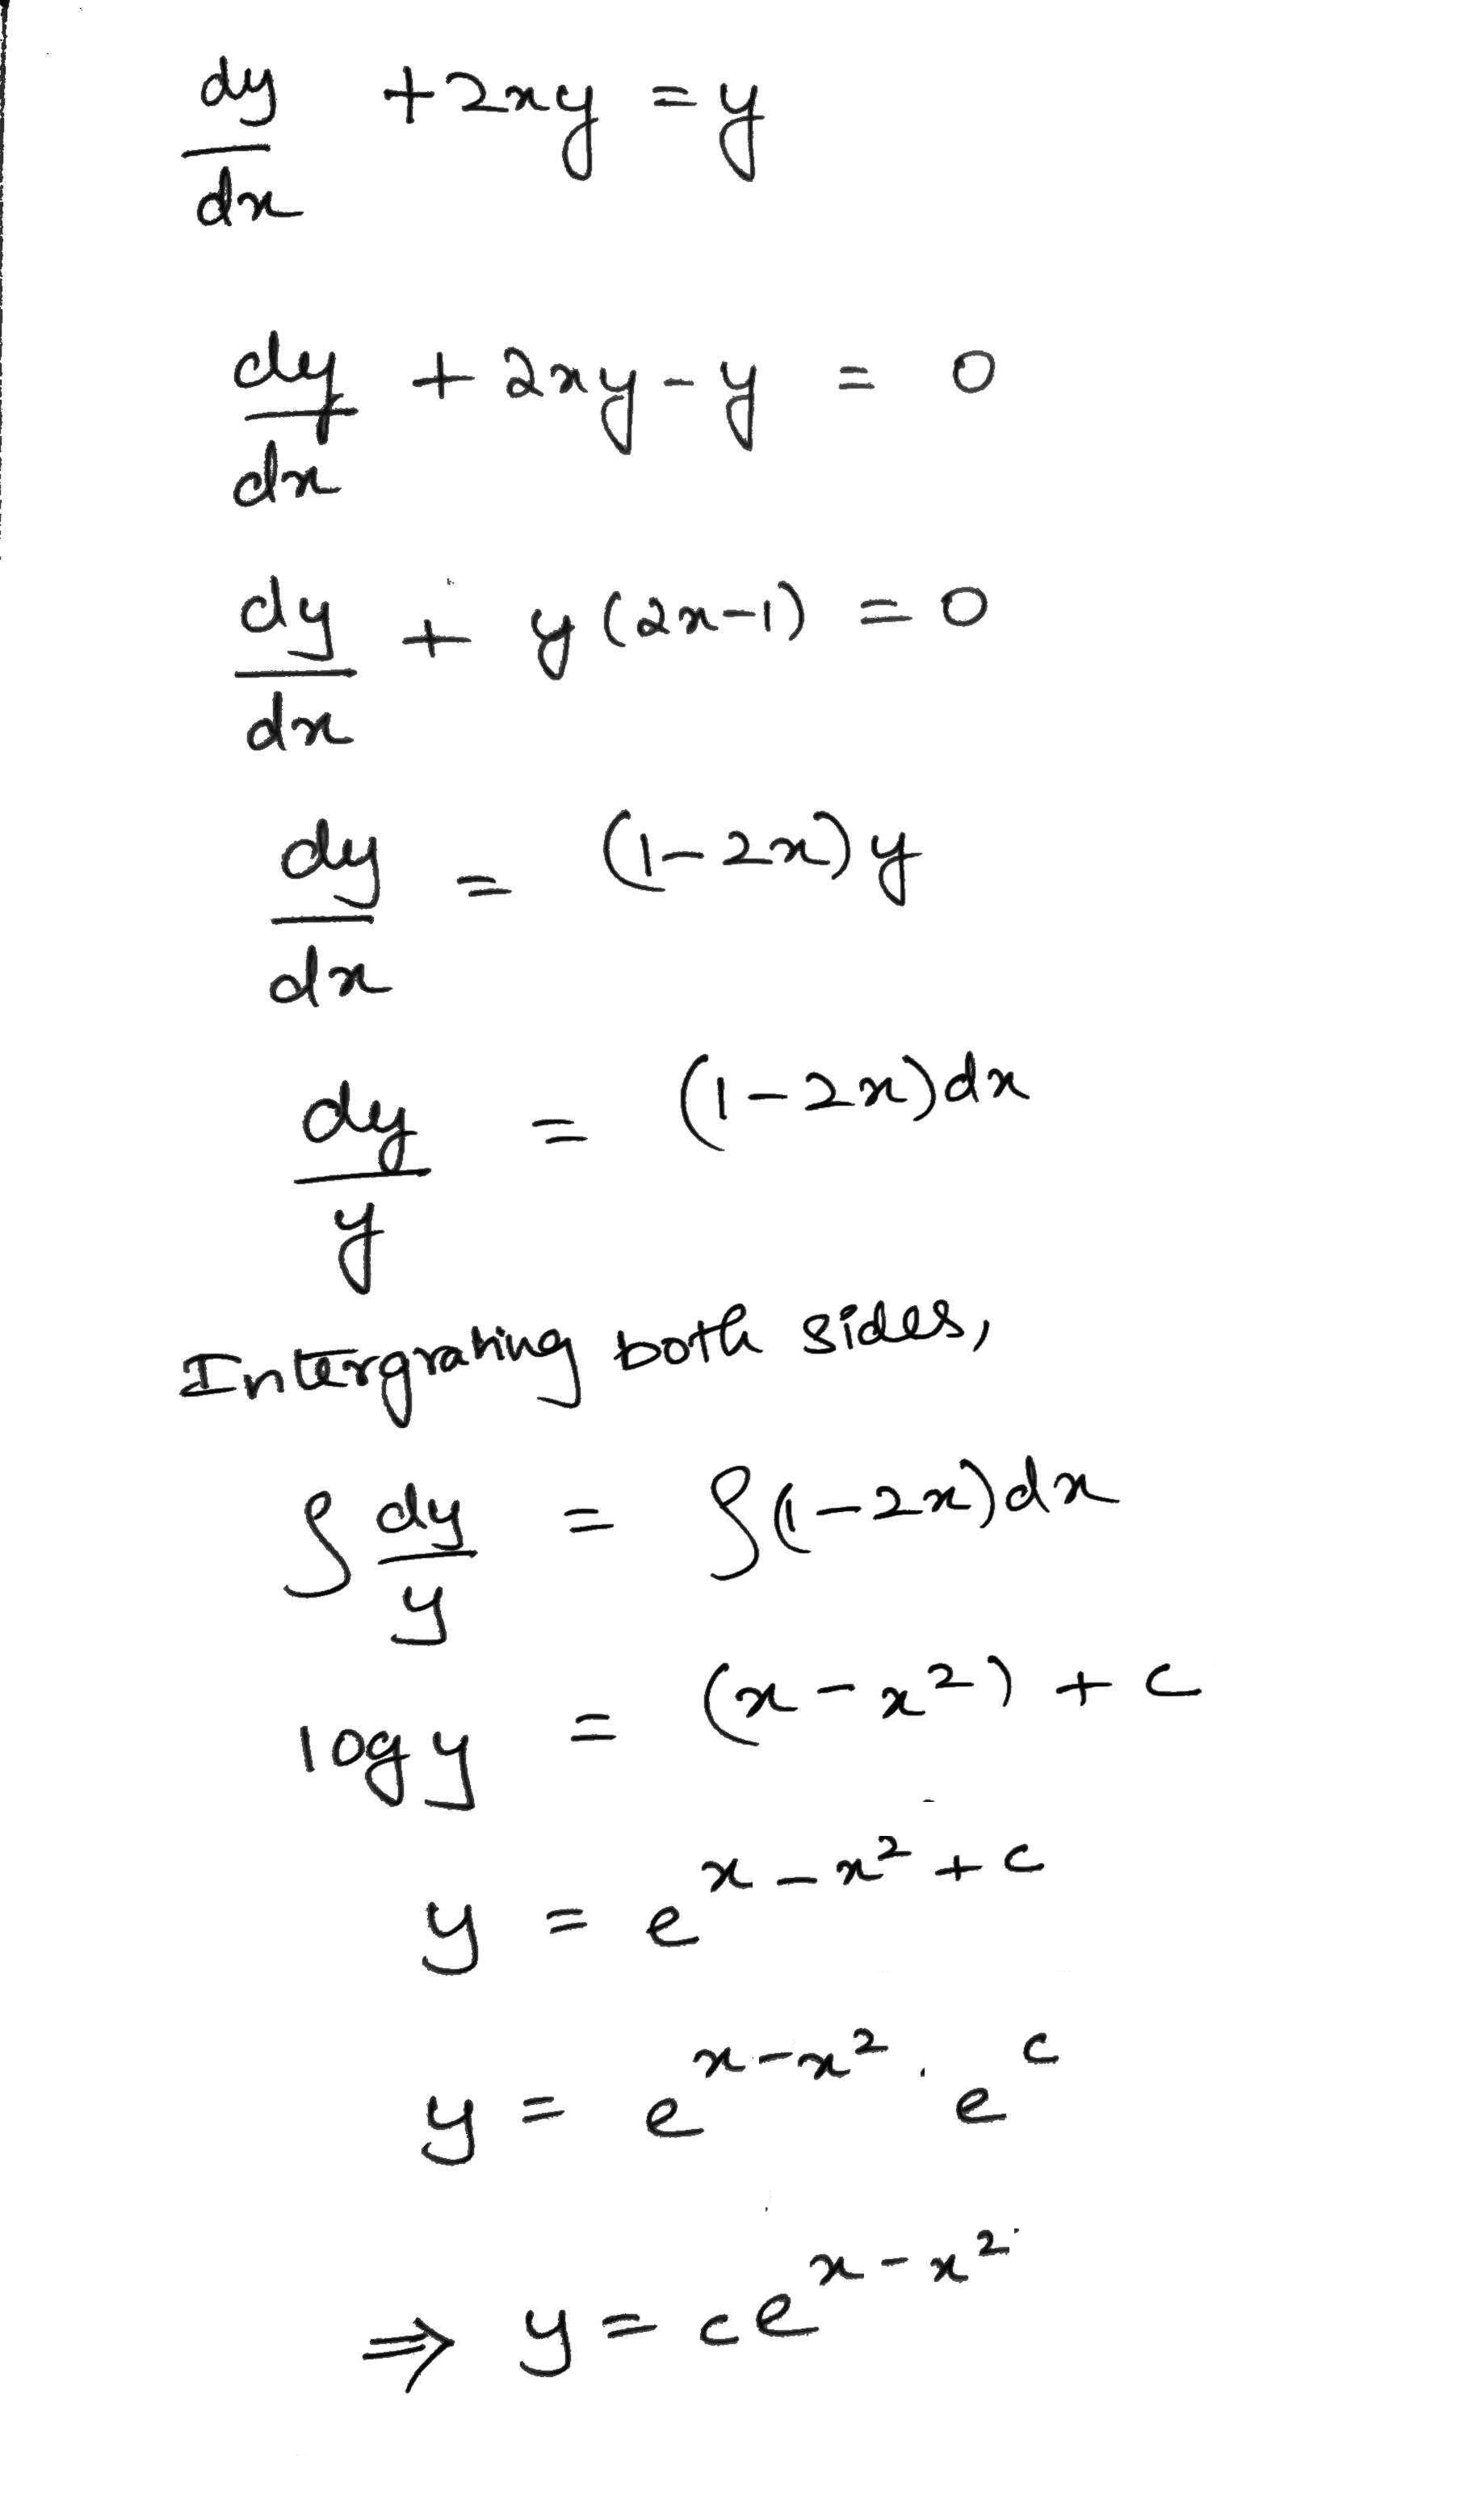 dy/dx + 2xy = y
dy/dx + 2xy - y = 0
dy/dx + y(2x-1) = 0
dy/dx = (1-2x)y
dy/y = (1-2x)dx
Intergrating both sides,
∫ dy/y = ∫(1-2x)dx
log y = (x - x²) + c
y = e^(x - x² + c)
y = e^(x-x²) . e^c
⇒ y = ce^(x-x²)